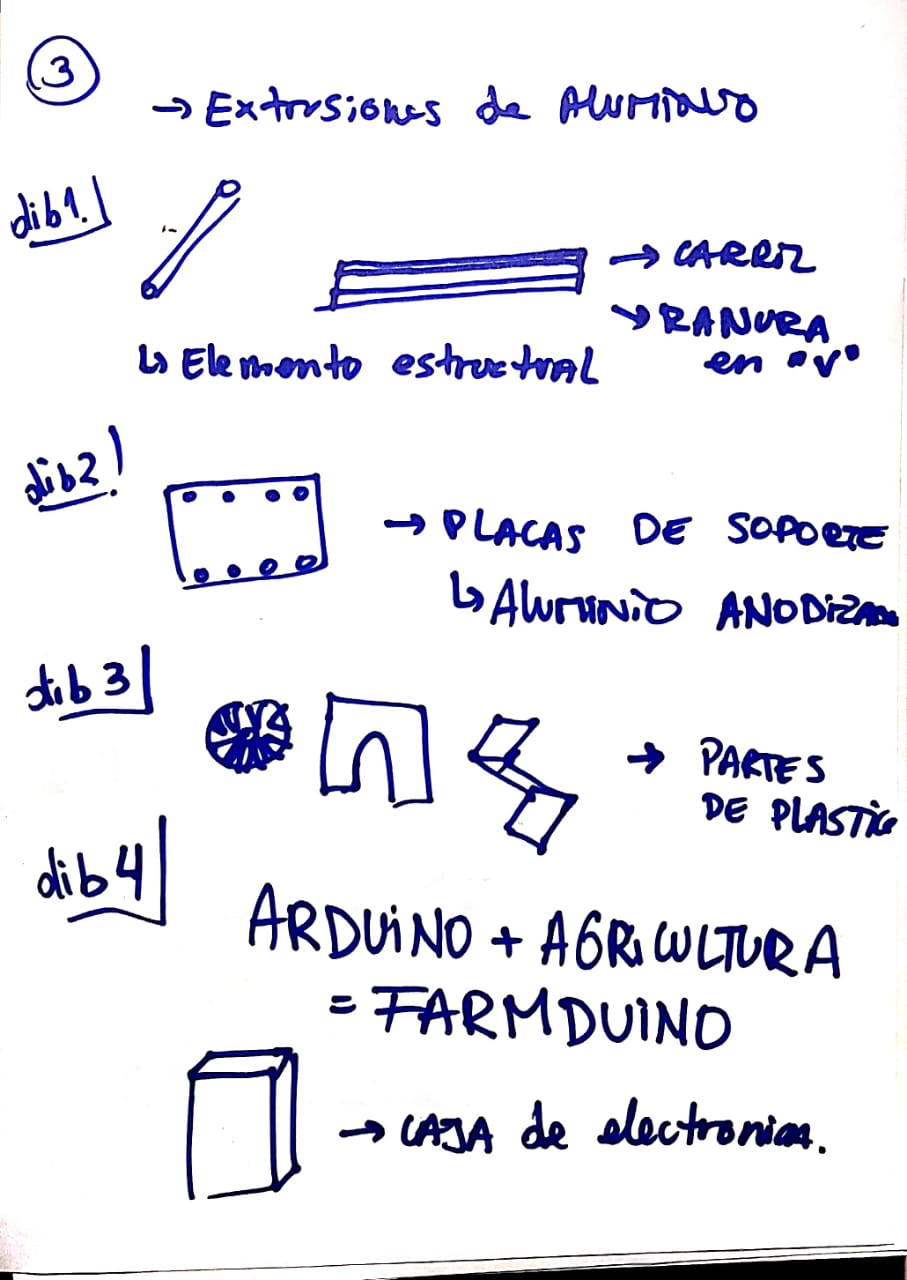 3
→ Extrusiones de ALUMINIO
dib1.
→ CARRIL
↳ RANURA
en "V"
↳ Elemento estructural
dib2!
→ PLACAS DE SOPORTE
↳ ALUMINIO ANODIZADO
dib3
→ PARTES
DE PLASTICO
dib4
ARDUiNO + AGRiCULTURA
= FARMDUiNO
→ CAJA de electronica.